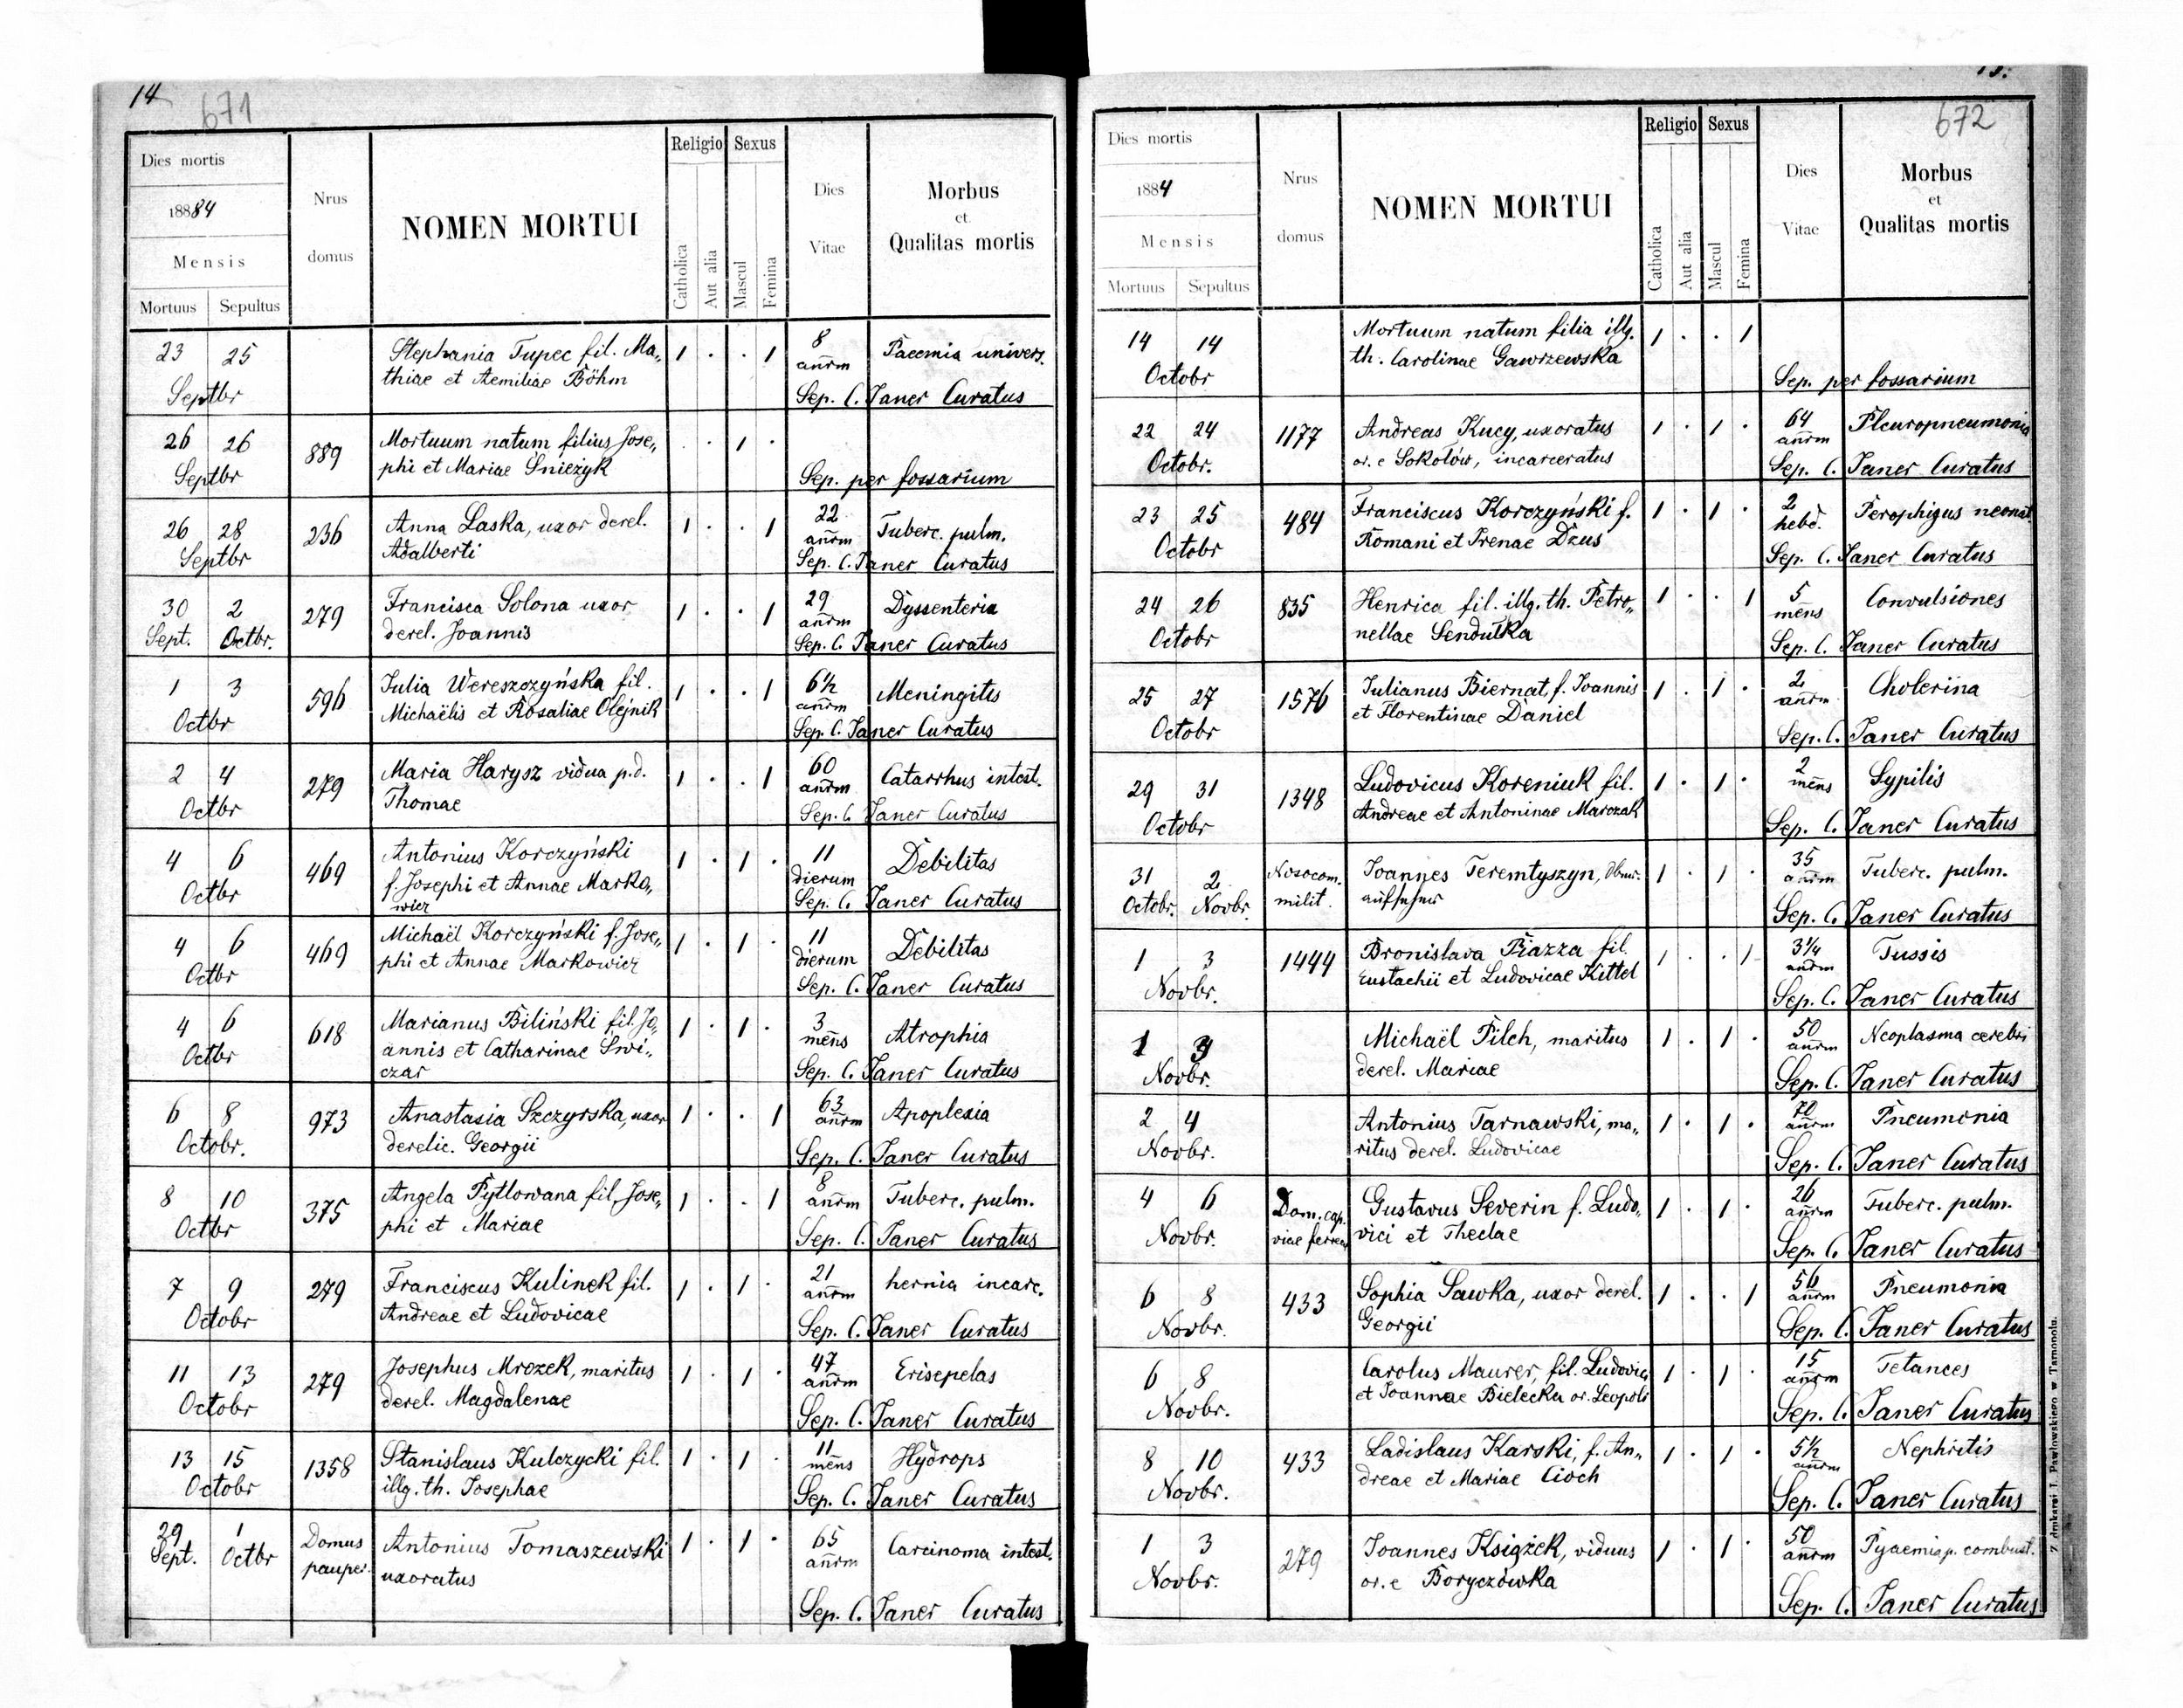 14
671
Dies mortis
18884
Mensis
Mortuus Sepultus
Nrus
domus
NOMEN MORTUI
Religio
Catholica
Aut alia
Sexus
Mascul
Femina
Dies
Vitae
Morbus
et
Qualitas mortis
23 25 Stephania Tupec fil. Ma„ 1 . . 1 8 univers.
Septbr thiae et Aemiliae Böhm añrm
Sep. C. Janer Curatus
26 26 889 Mortuum natum filius Jose„ . 1 .
Septbr phi et Mariae Śnieżyk
Sep. per fossarium
26 28 236 Anna Laska, uxor derel. 1 . . 1 22 Tuberc. pulm.
Septbr Adalberti añrm
Sep. C. Janer Curatus
30 2 279 Francisca Solona uxor 1 . . 1 29 Dyssenteria
Sept. Octbr. derel. Joannis añrm
Sep. C. Janer Curatus
1 3 596 Julia Wereszczyńska fil. 1 . . 1 6½ Meningitis
Octbr Michaëlis et Rosaliae Olejnik añrm
Sep. C. Janer Curatus
2 4 279 Maria Harysz vidua p.d. 1 . . 1 60 Catarrhus intest.
Octbr Thomae añrm
Sep. C. Janer Curatus
4 6 469 Antonius Korczyński 1 . 1 . 11 Debilitas
Octbr f. Josephi et Annae Marko„ dierum
wicz Sep. C. Janer Curatus
4 6 469 Michaël Korczyński f. Jose„ 1 . 1 . 11 Debilitas
Octbr phi et Annae Markowicz dierum
Sep. C. Janer Curatus
4 6 618 Marianus Biliński fil. Jo„ 1 . 1 . 3 Atrophia
Octbr annis et Catharinae Świ„ mens
czar Sep. C. Janer Curatus
6 8 973 Anastasia Szczyrska, uxor 1 . . 1 63 Apoplexia
Octobr. derelic. Georgii añrm
Sep. C. Janer Curatus
8 10 375 Angela Pytlowana fil. Jose„ 1 . . 1 8 Tuberc. pulm.
Octbr phi et Mariae añrm
Sep. C. Janer Curatus
7 9 279 Franciscus Kulinek fil. 1 . 1 . 21 hernia incarc.
Octobr Andreae et Ludovicae añrm
Sep. C. Janer Curatus
11 13 279 Josephus Mrozek, maritus 1 . 1 . 47 Erisepelas
Octobr derel. Magdalenae añrm
Sep. C. Janer Curatus
13 15 1358 Stanislaus Kulczycki fil. 1 . 1 . 11 Hydrops
Octobr illg. th. Josephae mens
Sep. C. Janer Curatus
29 1 Domus Antonius Tomaszewski 1 . 1 . 65 Carcinoma intest.
Sept. Octbr pauper. uxoratus añrm
Sep. C. Janer Curatus
672
Dies mortis
1884
Mensis
Mortuus Sepultus
Nrus
domus
NOMEN MORTUI
Religio
Catholica
Aut alia
Sexus
Mascul
Femina
Dies
Vitae
Morbus
et
Qualitas mortis
14 14 Mortuum natum filia illg. 1 . . 1
Octobr th. Carolinae Gawrzewska
Sep. per fossarium
22 24 1177 Andreas Kucy, uxoratus 1 . 1 . 64 Pleuropneumonia
Octobr. or. e Sokołów, incarceratus añrm
Sep. C. Janer Curatus
23 25 484 Franciscus Korczyński f. 1 . 1 . 2 Perophigus neonat.
Octobr Romani et Irenae Dzus hebd.
Sep. C. Janer Curatus
24 26 835 Henrica fil. illg. th. Petro„ 1 . . 1 5 Convulsiones
Octobr nellae Sendulka mens
Sep. C. Janer Curatus
25 27 1576 Julianus Biernat, f. Joannis 1 . 1 . 2 Cholerina
Octobr et Florentinae Daniel añrm
Sep. C. Janer Curatus
29 31 1348 Ludovicus Koreniuk fil. 1 . 1 . 2 Sypilis
Octobr Andreae et Antoninae Marczak mens
Sep. C. Janer Curatus
31 2 Nosocom. Joannes Teremtyszyn, 1 . 1 . 35 Tuberc. pulm.
Octobr. Novbr. milit. añrm
Sep. C. Janer Curatus
1 3 1444 Bronislava Piazza fil. 1 . . 1 3¼ Tussis
Novbr. Eustachii et Ludovicae Kittel añrm
Sep. C. Janer Curatus
1 3 Michaël Pilch, maritus 1 . 1 . 50 Neoplasma cerebri
Novbr. derel. Mariae añrm
Sep. C. Janer Curatus
2 4 Antonius Tarnawski, ma„ 1 . 1 . 70 Pneumonia
Novbr. ritus derel. Ludovicae añrm
Sep. C. Janer Curatus
4 6 Dom. cap. Gustavus Severin f. Ludo„ 1 . 1 . 26 Tuberc. pulm.
Novbr. viae ferreae vici et Theclae añrm
Sep. C. Janer Curatus
6 8 433 Sophia Sawka, uxor derel. 1 . . 1 56 Pneumonia
Novbr. Georgii añrm
Sep. C. Janer Curatus
6 8 Carolus Maurer, fil. Ludovici 1 . 1 . 15 Tetances
Novbr. et Joannae Bielecka or. Leopoli añrm
Sep. C. Janer Curatus
8 10 433 Ladislaus Karski, f. An„ 1 . 1 . 5½ Nephritis
Novbr. dreae et Mariae Cioch añrm
Sep. C. Janer Curatus
1 3 279 Joannes Książek, viduus 1 . 1 . 50 Pyaemia p. combust.
Novbr. or. e Boryczówka añrm
Sep. C. Janer Curatus
Z drukarni J. Pawłowskiego w Tarnopolu.